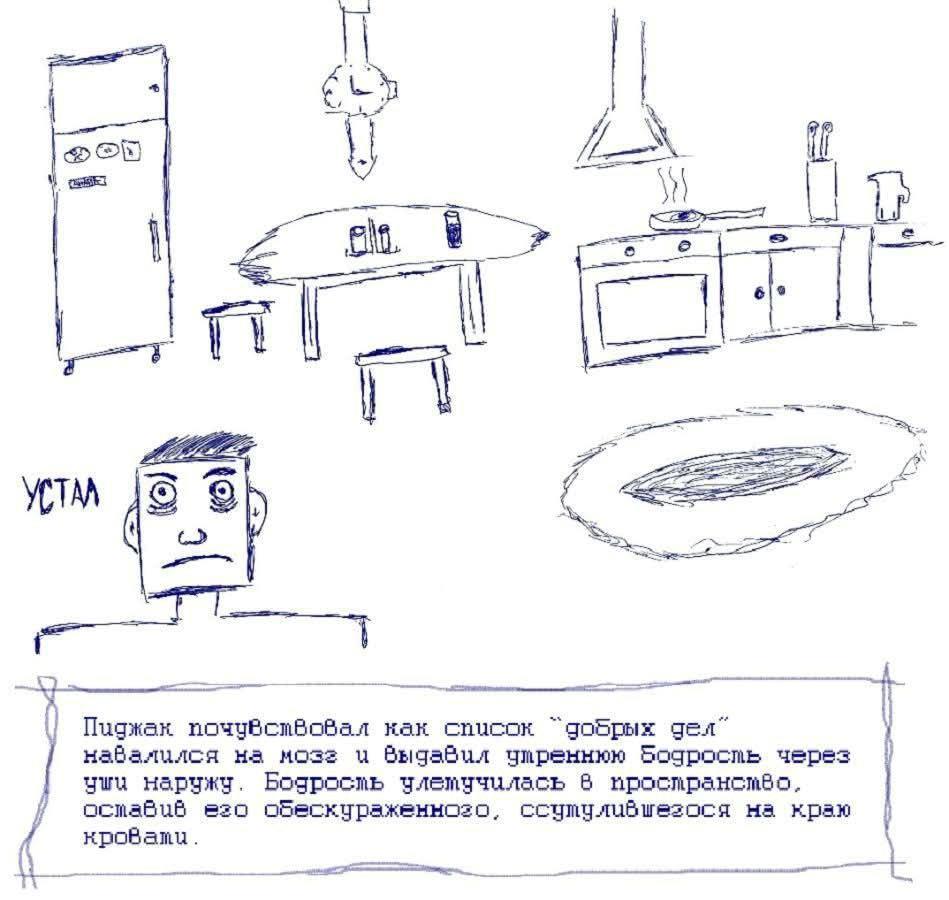 УСТАЛ
Пиджак почувствовал как список “добрых дел”
навалился на мозг и выдавил утреннюю бодрость через
уши наружу. Бодрость улетучилась в пространство,
оставив его обескураженного, ссутулившегося на краю
кровати.